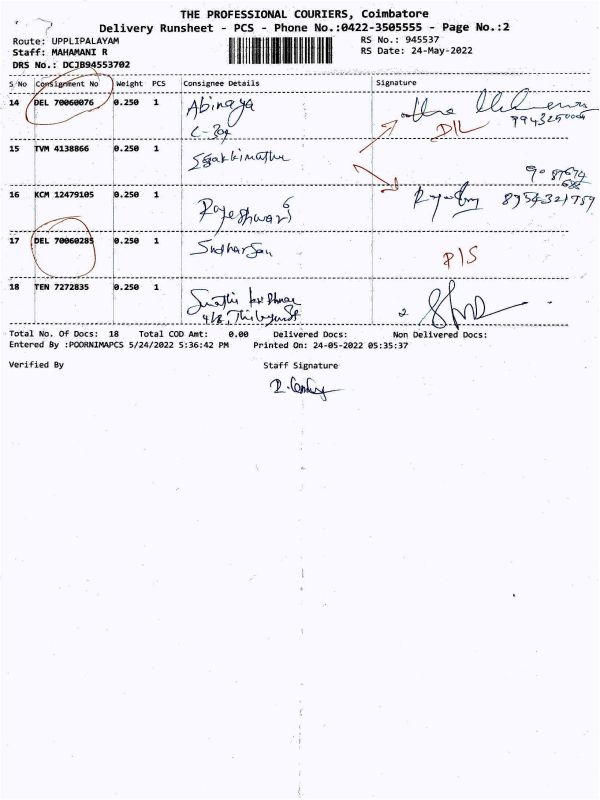 THE PROFESSIONAL COURIERS, Coimbatore
Delivery Runsheet - PCS - Phone No.:0422-3505555 - Page No.:2
Route: UPPLIPALAYAM RS No.: 945537
Staff: MAHAMANI R RS Date: 24-May-2022
DRS No.: DCJB94553702
S No Consignment No Weight PCS Consignee Details Signature
14 DEL 70060076 0.250 1 Abinaya
D/L
15 TVM 4138866 0.250 1
16 KCM 12479105 0.250 1 Rajeshwari 8954321759
17 DEL 70060285 0.250 1 Sudharsan P/S
18 TEN 7272835 0.250 1
Total No. Of Docs: 18 Total COD Amt: 0.00 Delivered Docs: Non Delivered Docs:
Entered By :POORNIMAPCS 5/24/2022 5:36:42 PM Printed On: 24-05-2022 05:35:37
Verified By Staff Signature